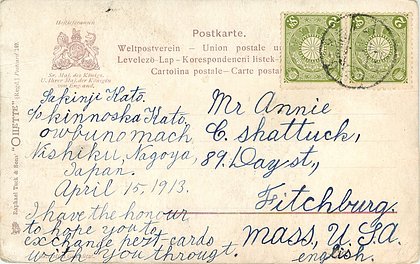 Hoflieferanten
Sr. Maj. des Königs
U. Ihrer Maj. der Königin
von England.
Postkarte.
Weltpostverein – Union postale
Levelező-Lap – Korespondeneni listek
Cartolina postale – Carte
Raphael Tuck & Sons' "OILETTE" (Regd.) Postcard
Sakinji Kato.
℅ kinnoska Kato.
owbunomach
Nishiku, Nagoya,
Japan.
April 15, 1913.
I have the honour
to hope you to
exchange post-cards
with you throught
english.
Mr Annie
C. Shattuck,
89. Day st.,
Fitchburg.
Mass, U.S.A.